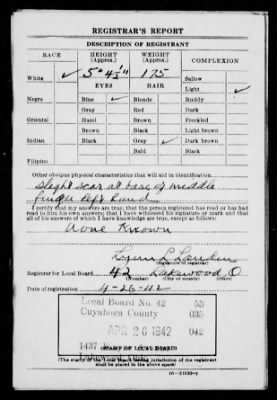 REGISTRAR'S REPORT
DESCRIPTION OF REGISTRANT
RACE HEIGHT (Approx.) WEIGHT (Approx.) COMPLEXION
White ✓ 5" 4½" 175 Sallow
EYES HAIR Light ✓
Negro Blue ✓ Blonde Ruddy
Gray Red Dark
Oriental Hazel Brown Freckled
Brown Black Light brown
Indian Black Gray ✓ Dark brown
Bald Black
Filipino
Other obvious physical characteristics that will aid in identification
Slight scar at base of middle
finger left hand
I certify that my answers are true; that the person registered has read or has had
read to him his own answers; that I have witnessed his signature or mark and that
all of his answers of which I have knowledge are true, except as follows:
None Known
(Signature of registrar)
Registrar for Local Board 42 Lakewood O
(Number) (City or county) (State)
Date of registration 4-26-42
Local Board No. 42 53
Cuyahoga County 035
APR 26 1942 042
1437
(STAMP OF LOCAL BOARD)
(The stamp of the Local Board having jurisdiction of the registrant
shall be placed in the above space)